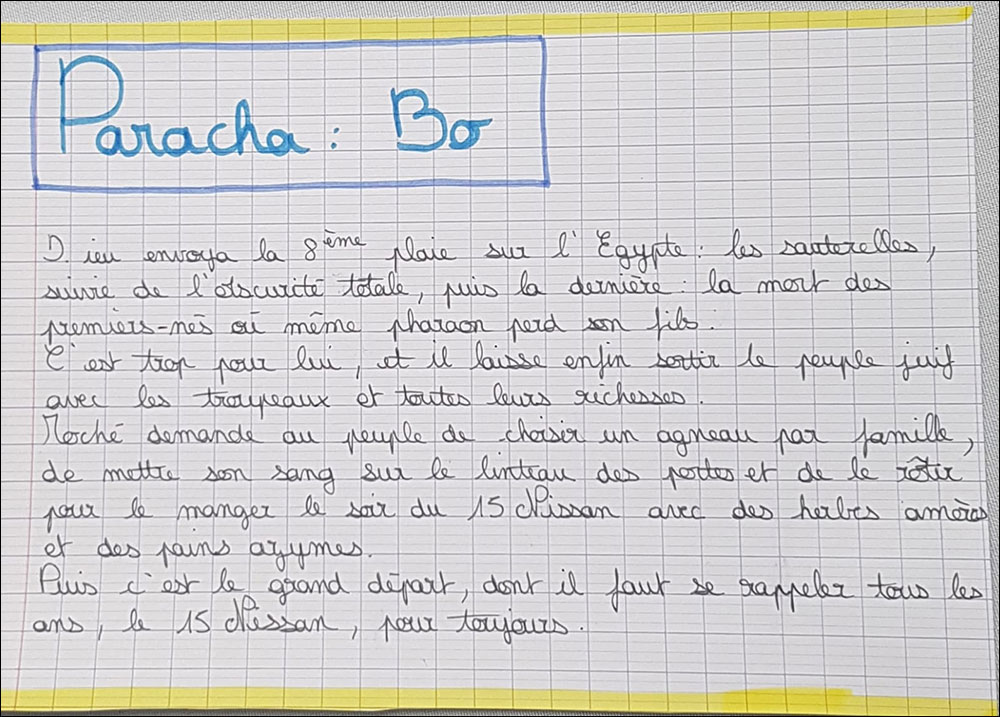 Paracha : Bo
D. ieu envoya la 8ème plaie sur l'Egypte : les sauterelles,
suivie de l'obscurité totale, puis la dernière : la mort des
premiers-nés où même pharaon perd son fils.
C'est trop pour lui, et il laisse enfin sortir le peuple juif
avec les troupeaux et toutes leurs richesses.
Moché demande au peuple de choisir un agneau par famille,
de mettre son sang sur le linteau des portes et de le rôtir
pour le manger le soir du 15 Nissan avec des herbes amères
et des pains azymes.
Puis c'est le grand départ, dont il faut se rappeler tous les
ans, le 15 Nissan, pour toujours.